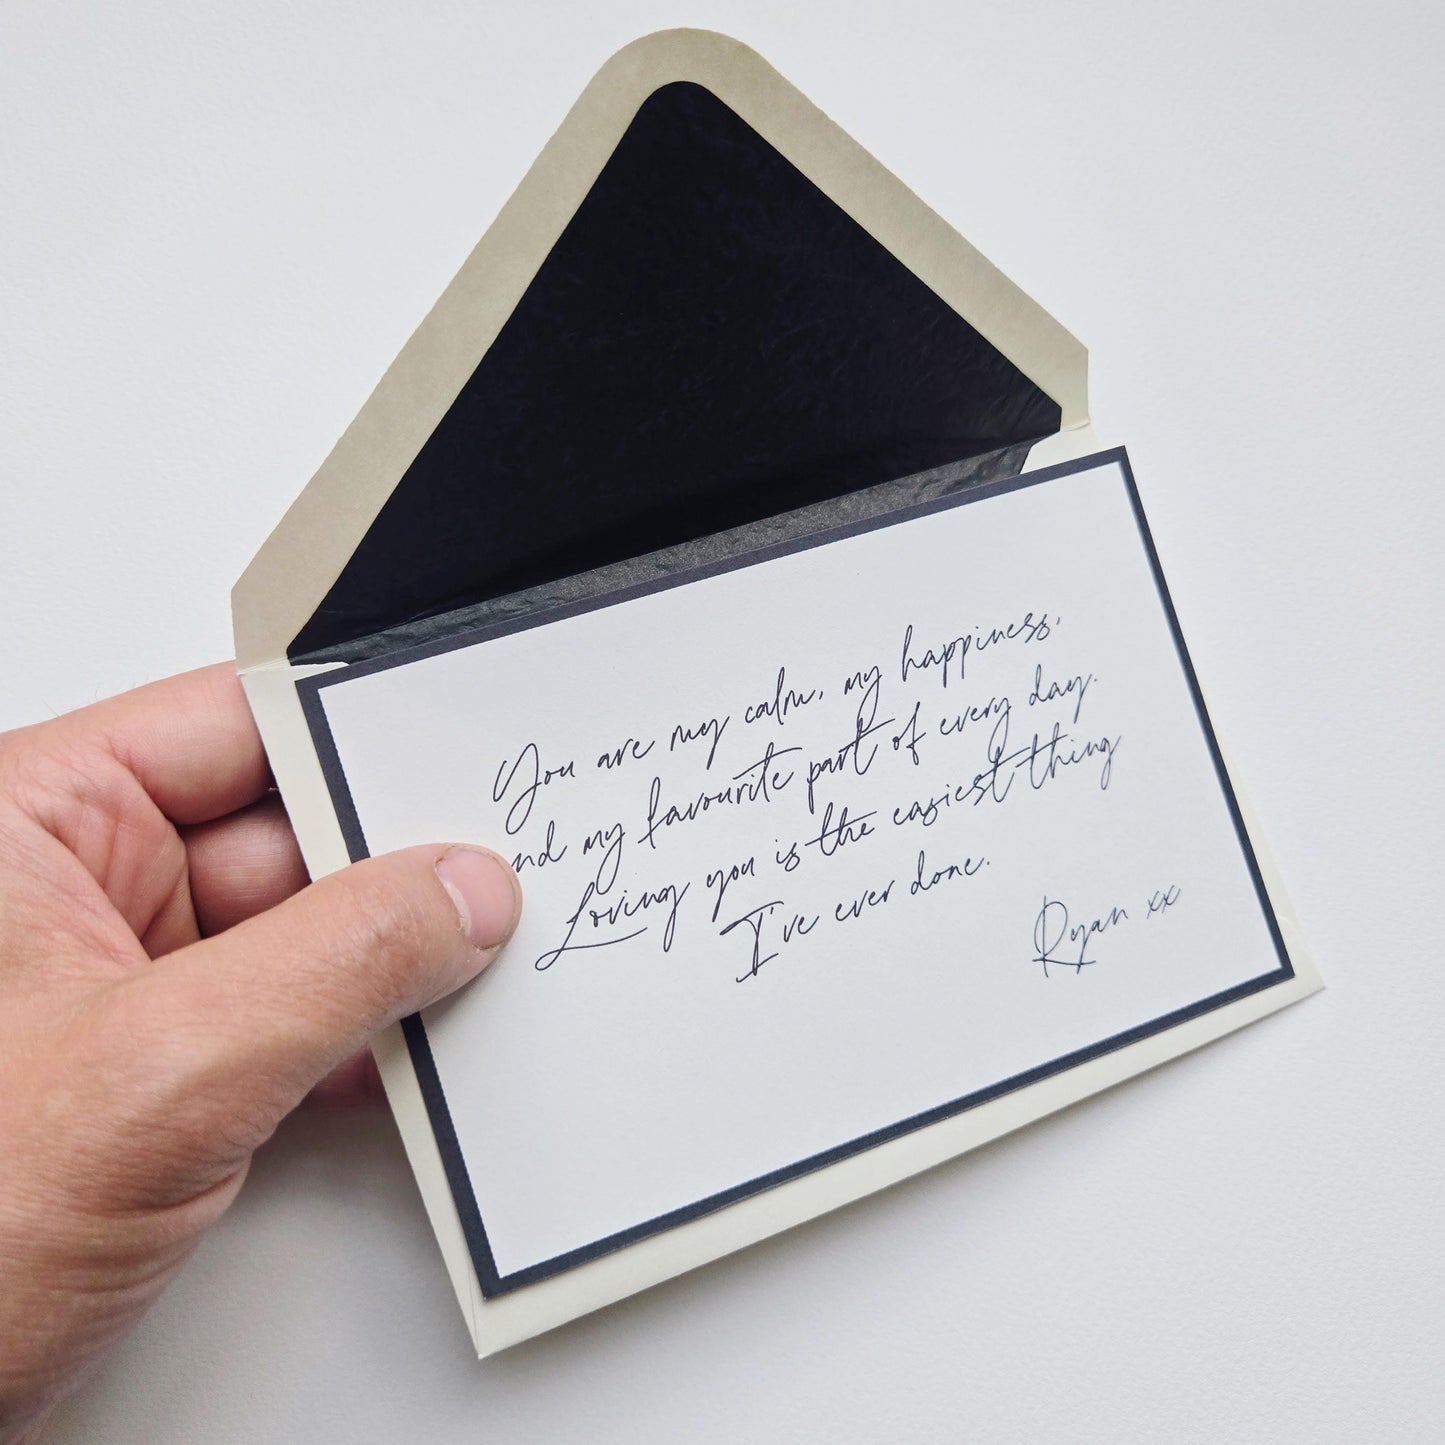 You are my calm, my happiness,
nd my favourite part of every day.
Loving you is the easiest thing
I've ever done.
Ryan xx